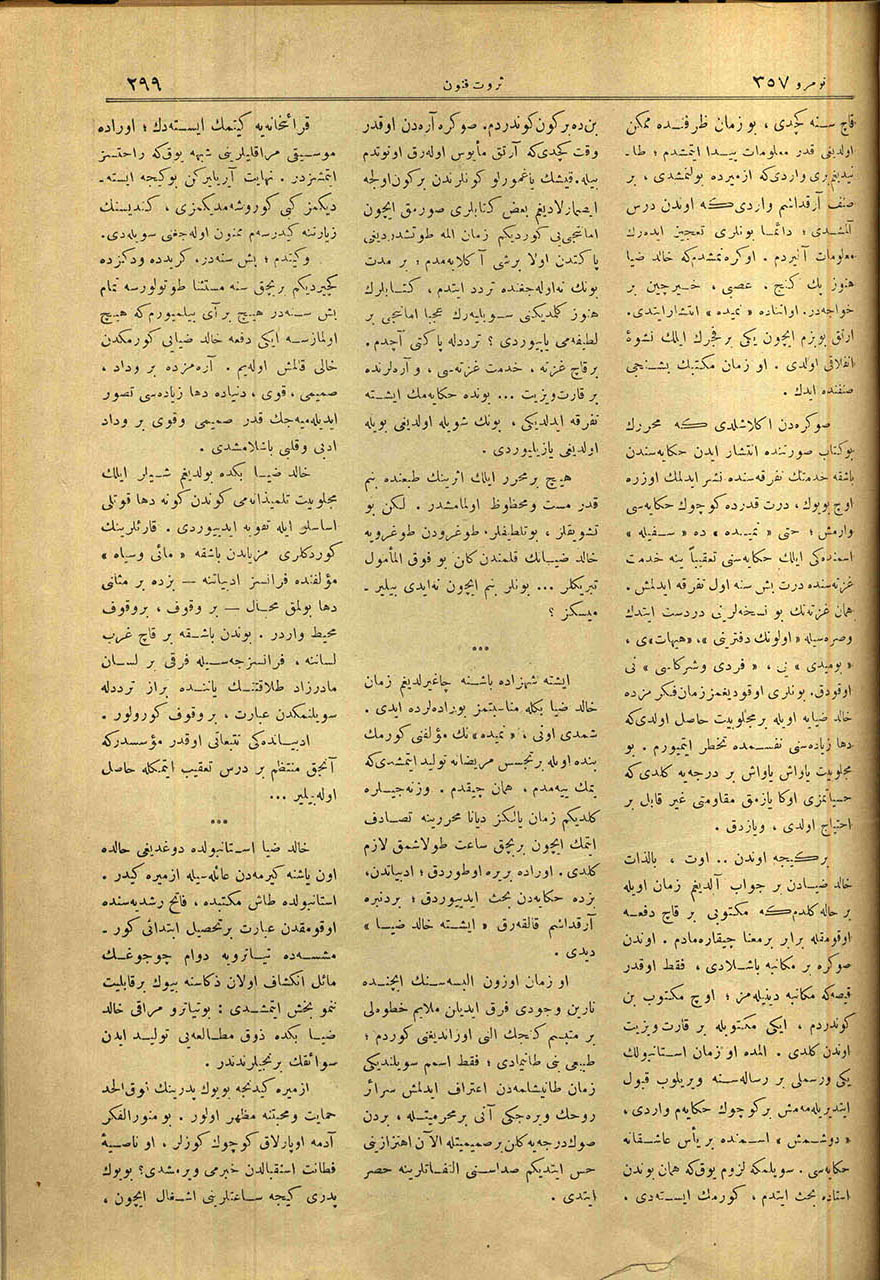 نومرو ٣٥٧
ثروت فنون
٢٩٩
قاچ سنه كچدی ، بو زمان ظرفنده ممكن
اولدیغی قدر معلومات پیدا ایتمشدم ؛ طا-
نیدیغم بری واردی كه ازمیرده بولنمشدی ، بر
صنف آرقداشم واردی كه اوندن درس
آلمشدی ؛ دائما بونلری تعجیز ایده رك
معلومات آلیردم . اوكره نمشدم كه خالد ضیا
هنوز پك كنج . عصبی ، خیرچین بر
خواجه در. اواثناده « نمیده » انتشار ایتدی.
ارتق بو بزم ایچون یكی بر فجرك ایلك نشوۀ
انفلاقی اولدی . او زمان مكتبك بشنجی
صنفنده ایدك .
صوكره دن اكلاشلدی كه محررك
بو كتاب صورتنده انتشار ایدن حكایه سندن
باشقه خدمتك تفرقه سنده نشر ایدلمك اوزره
اوچ بویوك ، درت قدرده كوچوك حكایه سی
وارمش ؛ حتی « نمیده » ده « سفیله »
اسمنده كی ایلك حكایه سنی تعقیباً ینه خدمت
غزته سنده درت بش سنه اول تفرقه ایدلمش .
همان غزته نك بو نسخه لرینی دردست ایتدك
وصره سیله « اولونك دفترینی »، « هیهات » ی ،
« بومیدی » یی ، « فردی وشركاسی » نی
اوقودق. بونلری اوقودیغمز زمان فكر مزده
خالد ضیایه اویله بر مجلوبیت حاصل اولدی كه
دها زیاده سنی نفسمده تخطر ایتمیورم . بو
مجلوبیت یاواش یاواش بر درجه یه كلدی كه
حسیاتمزی اوكا یازمق مقاومتی غیر قابل بر
احتیاج اولدی ، ویازدق .
بر كیجه اوندن .. اوت ، بالذات
خالد ضیادن بر جواب آلدیغم زمان اویله
بر حاله كلدم كه مكتوبی بر قاچ دفعه
اوقومقله برابر بر معنا چیقاره مادم . اوندن
صوكره بر مكاتبه باشلادی ، فقط اوقدر
قیصه كه مكاتبه دینیله مز ؛ اوچ مكتوب بن
كوندردم ، ایكی مكتوبله بر قارت ویزیت
اوندن كلدی . المده او زمان استانبولك
یكی ورسملی بر رساله سنه ویریلوب قبول
ایتدیریله مه مش بر كوچوك حكایه م واردی ،
« دوشمش » اسمنده بر یأس عاشقانه
حكایه سی . سویلمكه لزوم یوق كه همان بوندن
استاده بحث ایتدم ، كورمك ایسته دی ،
بن ده بر كون كوندردم. صوكره آره دن اوقدر
وقت كچدی كه آرتق مأیوس اوله رق اونوتدم
بیله. قیشك یاغمورلو كونلرندن بر كون اولجه
ایصمارلادیغم بعض كتابلری صورمق ایچون
امانتجی یی كوردیكم زمان المه طوتشدردیغی
پاكتدن اولا برشی آ كلایه مدم ؛ بر مدت
بونك نه اوله جغنده تردد ایتدم ، كتابلرك
هنوز كلدیكنی سویلیه رك عجبا امانتجی بر
لطیفه می یاپیوردی ؟ تردد له پاكتی آچدم.
بر قاچ غزته ، خدمت غزته سی ، و آره لرنده
بر قارت ویزیت ... بونده حكایه مك ایشته
تفرقه ایدلدیكی ، بونك شویله اولدیغی بویله
اولدیغی یازیلیوردی .
هیچ بر محرر ایلك اثرینك طبعنده بنم
قدر مست ومحظوظ اولمامشدر . لكن بو
تشویقلر ، بو تلطیفلر، طوغرودن طوغرویه
خالد ضیانك قلمندن كلن بو فوق المأمول
تبریكلر ... بونلر بنم ایچون نه ایدی بیلیر -
میسكز ؟
***
ایشته شهزاده باشنه چاغیرلدیغم زمان
خالد ضیا بكله مناسبتمز بوراده لرده ایدی .
شمدی اونی ، « نمیده » نك مؤلفنی كورمك
بنده اویله بر تجسس مریضانه تولید ایتمشدی كه
یمك ییه مدم ، همان چیقدم . وزنه جیلره
كلدیكم زمان یالكز دیانا محررینه تصادف
ایتمك ایچون بر بچق ساعت طولاشمق لازم
كلدی . اوراده بر یره اوطوردق ؛ ادبیاتدن،
بزده حكایه دن بحث ایدییوردق ؛ بردنبره
آرقداشم قالقه رق « ایشته خالد ضیا »
دیدی .
او زمان اوزون البسه سنك ایچنده
نارین وجودی فرق ایدیلن ملایم خطوطلی
بر متبسم كنجك الی اوزاندیغنی كوردم ؛
طبیعی بنی طانیمادی ؛ فقط اسمم سویلندیكی
زمان طانیشلمه دن اعتراف ایدلمش سرائر
روحك ویره جكی آنی بر محرمیتله ، بردن
صوك درجه یه كلن بر صمیمیتله الآن اهتزازینی
حس ایتدیكم صداسنی التفاتلرینه حصر
ایتدی .
قرائتخانه یه كیتمك ایسته دك ؛ اوراده
موسیقی مراقلیلرینی شبهه یوق كه راحتسز
ایتمشزدر . نهایت آیریلیركن بو كیجه ایسته-
دیكمز كبی كوروشه مدیكمزی ، كندیسنك
زیارتنه كیدرسه م ممنون اوله جغنی سویله دی.
وكیتدم ؛ بش سنه در، كریدده ودكزده
كچیردیكم بر بچق سنه مستثنا طوتولورسه تمام
بش سنه در هیچ بر آی بیلمیورم كه هیچ
اولمازسه ایكی دفعه خالد ضیایی كورمكدن
خالی قالمش اوله یم . آره مزده بر وداد ،
صمیمی ، قوی ، دنیاده دها زیاده سی تصور
ایدیله میه جك قدر صمیمی وقوی بر وداد
ادبی وقلبی باشلامشدی .
خالد ضیا بكده بولدیغم شیلر ایلك
مجلوبیت تلمیذانه می كوندن كونه دها قوتلی
اساسلر ایله تقویه ایدییوردی . قارئلرینك
كوردكلری مزیادن باشقه « مائی وسیاه »
مؤلفنده فرانسز ادبیاتنه — بزده بر مثالی
دها بولمق محال — بر وقوف ، بر وقوف
محیط واردر . بوندن باشقه بر قاچ غرب
لساننه ، فرانسزجه سیله فرقی بر لسان
مادرزاد طلاقتنك یاننده براز تردد له
سویلنمكدن عبارت ، بر وقوف كورولور .
ادبیاتده كی تتبعاتی اوقدر مؤسسدر كه
آنجق منتظم بر درس تعقیب ایتمكله حاصل
اوله بیلیر ...
***
خالد ضیا استانبولده دوغدیغی حالده
اون یاشنه كیرمه دن عائله سیله ازمیره كیدر .
استانبولده طاش مكتبده ، فاتح رشدیه سنده
اوقومقدن عبارت بر تحصیل ابتدائی كور -
مشسه ده تیاترویه دوام چوجوغك
مائل انكشاف اولان ذكاسنه بیوك بر قابلیت
نمو بخش ایتمشدی : بو تیاترو مراقی خالد
ضیا بكده ذوق مطالعه یی تولید ایدن
سوائقك برنجیلرندندر .
ازمیره كیدنجه بویوك پدرینك فوق الحد
حمایت ومحبتنه مظهر اولور . بو منور الفكر
آدمه اوپارلاق كوچوك كوزلر ، او ناصیۀ
فطانت استقبالدن خبرمی ویرمشدی؟ بویوك
پدری كیجه ساعتلرینی اشغال ایچون ،